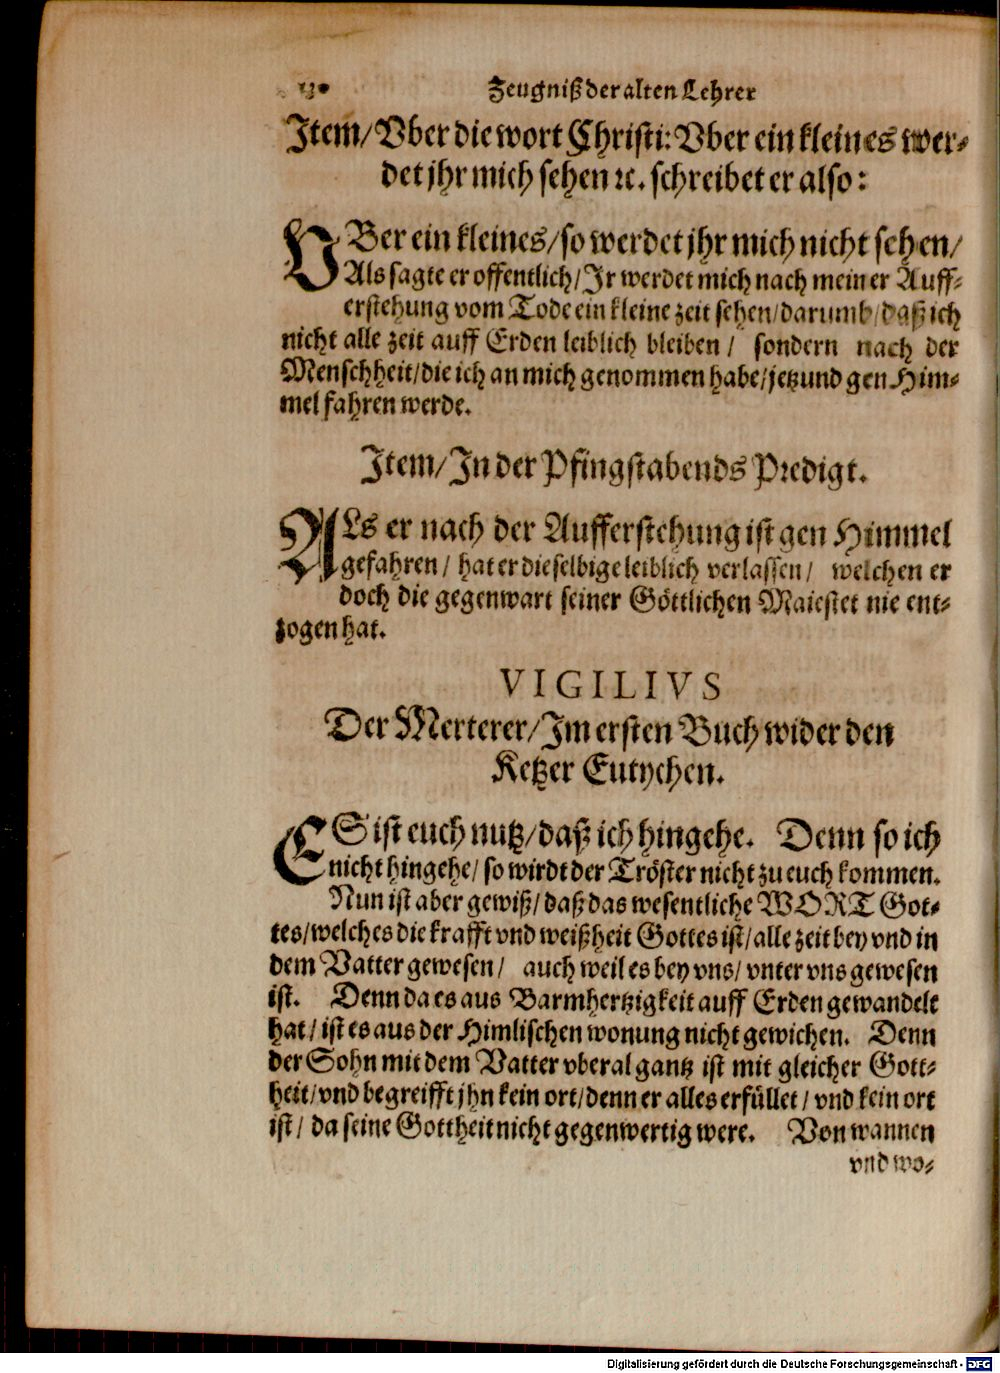 Zeugniß der alten Lehrer
Item/ Vber die wort Christi: Vber ein kleines wer-
det jhr mich sehen ꝛc. schreibet er also:
VBer ein kleines/ so werdet jhr mich nicht sehen/
Als sagte er offentlich/ Ir werdet mich nach meiner Auff-
erstehung vom Tode ein kleine zeit sehen/ darumb/ daß ich
nicht alle zeit auff Erden leiblich bleiben/ sondern nach der
Menschheit/ die ich an mich genommen habe/ jetzund gen Him-
mel fahren werde.
Item/ In der Pfingstabends Predigt.
ALs er nach der Aufferstehung ist gen Himmel
gefahren/ hat er dieselbige leiblich verlassen/ welchen er
doch die gegenwart seiner Göttlichen Maiestet nie ent-
zogen hat.
VIGILIVS
Der Merterer/ Im ersten Buch wider den
Ketzer Eutychen.
ES ist euch nutz/ daß ich hingehe. Denn so ich
nicht hingehe/ so wirdt der Tröster nicht zu euch kommen.
Nun ist aber gewiß/ daß das wesentliche WORT Got-
tes/ welches die krafft vnd weißheit Gottes ist/ alle zeit bey vnd in
dem Vatter gewesen/ auch weil es bey vns/ vnter vns gewesen
ist. Denn da es aus Barmhertzigkeit auff Erden gewandelt
hat/ ist es aus der Himlischen wonung nicht gewichen. Denn
der Sohn mit dem Vatter vberal gantz ist mit gleicher Gott-
heit/ vnd begreifft jhn kein ort/ denn er alles erfüllet/ vnd kein ort
ist/ da seine Gottheit nicht gegenwertig were. Von wannen
vnd wo-
Digitalisierung gefördert durch die Deutsche Forschungsgemeinschaft - DFG